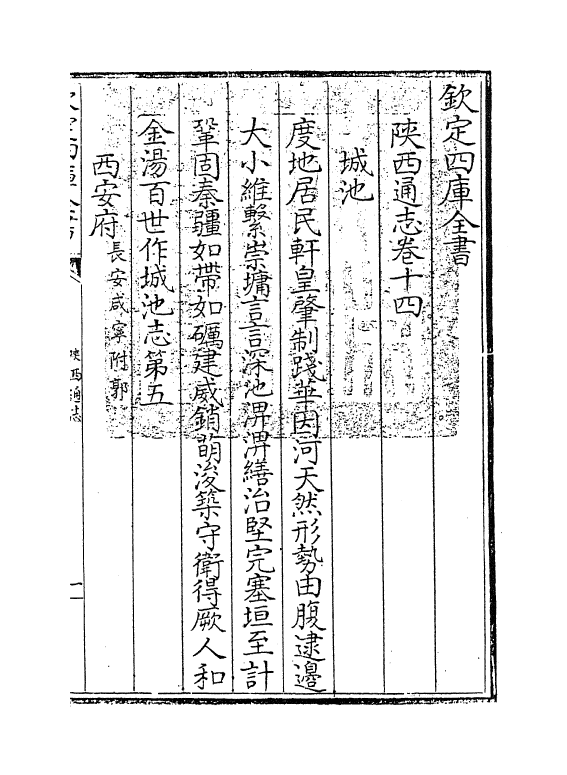 欽定四庫全書
陝西通志卷十四
城池
度地居民軒皇肇制踐華因河天然形勢由腹逮邊
大小維繫崇墉言言深池淠淠繕治堅完塞垣至計
鞏固秦疆如帶如礪建威銷萌浚築守衛得厥人和
金湯百世作城池志第五
西安府長安咸寧附郭
陝西通志
一